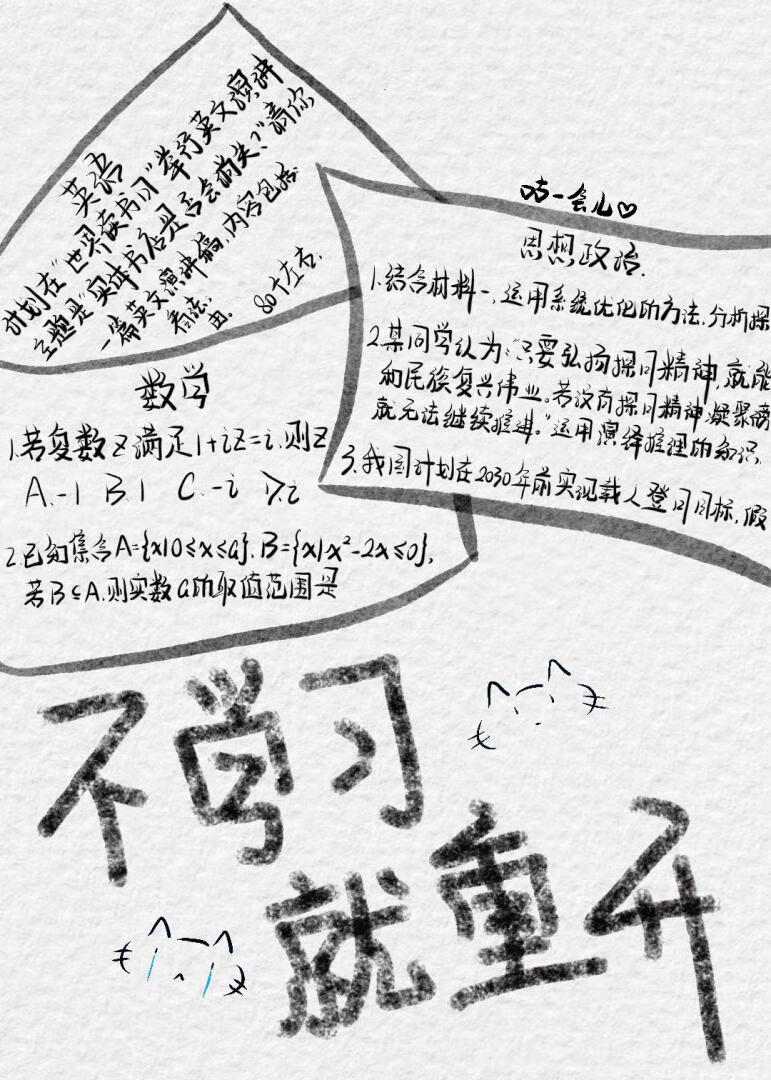 英语
计划在"世界读书日"举行英文演讲
主题是"实体书店是否会消失?"请你
一篇英文演讲稿,内容包括
看法;
由. 80个左右.
咕一会儿♡
思想政治.
1.结合材料一,运用系统优化的方法,分析探
2.某同学认为:"只要弘扬探月精神,就能
的民族复兴伟业。若没有探月精神凝聚磅
就无法继续推进。"运用演绎推理的知识,
3.我国计划在2030年前实现载人登月目标,假
数学
1.若复数z满足1+iz=i.则z
A.-1 B.1 C.-i D.i
2.已知集合A={x|0≤x≤a}.B={x|x²-2x≤0},
若B⊆A.则实数a的取值范围是
不学习
就重开